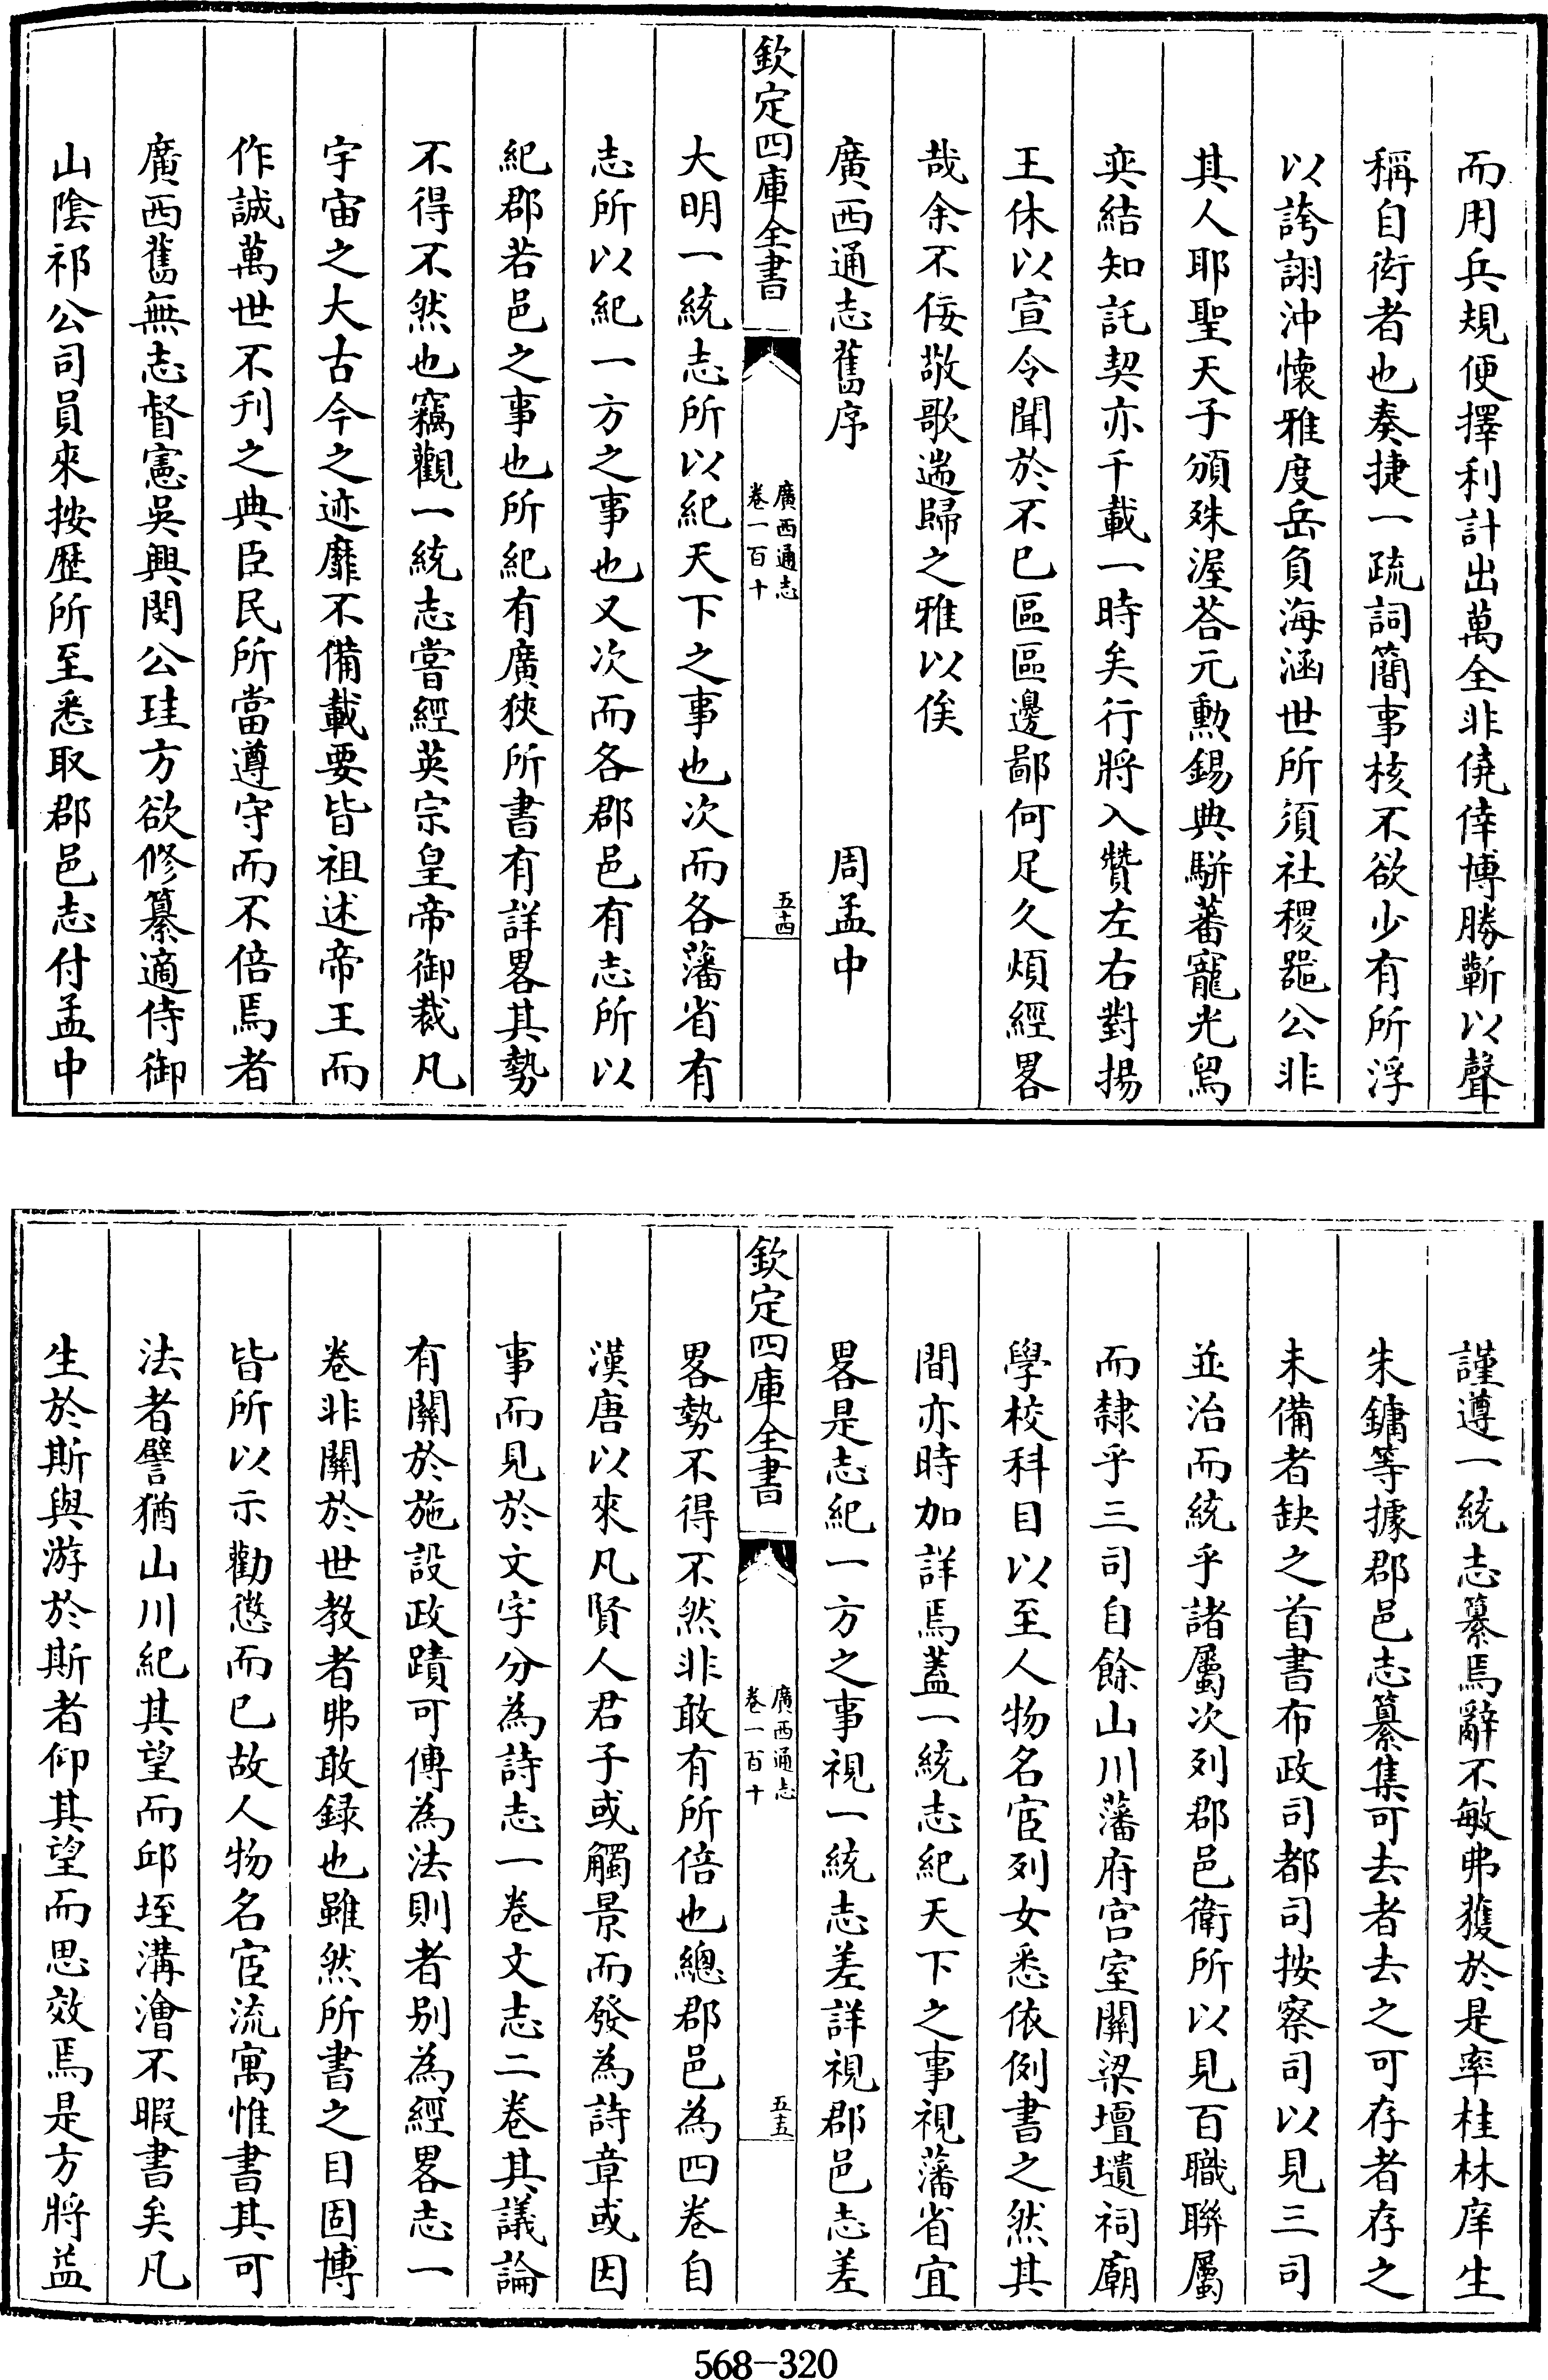 而用兵規便擇利計出萬全非僥倖博勝蘄以聲
稱自衒者也奏捷一疏詞簡事核不欲少有所浮
以誇詡沖懷雅度岳負海涵世所須社稷器公非
其人耶聖天子頒殊渥荅元勲錫典駢蕃寵光舄
奕結知託契亦千載一時矣行將入贊左右對揚
王休以宣令聞於不已區區邊鄙何足久煩經畧
哉余不佞敬歌遄歸之雅以俟
廣西通志舊序 周孟中
欽定四庫全書 廣西通志 卷一百十 五十四
大明一統志所以紀天下之事也次而各藩省有
志所以紀一方之事也又次而各郡邑有志所以
紀郡若邑之事也所紀有廣狹所書有詳畧其勢
不得不然也竊觀一統志嘗經英宗皇帝御裁凡
宇宙之大古今之迹靡不備載要皆祖述帝王而
作誠萬世不刊之典臣民所當遵守而不倍焉者
廣西舊無志督憲吳興閔公珪方欲修纂適侍御
山隂祁公司員來按歷所至悉取郡邑志付孟中
謹遵一統志纂焉辭不敏弗獲於是率桂林庠生
朱鏞等據郡邑志纂集可去者去之可存者存之
未備者缺之首書布政司都司按察司以見三司
並治而統乎諸屬次列郡邑衛所以見百職聯屬
而隸乎三司自餘山川藩府宫室關梁壇壝祠廟
學校科目以至人物名宦列女悉依例書之然其
間亦時加詳焉蓋一統志紀天下之事視藩省宜
畧是志紀一方之事視一統志差詳視郡邑志差
欽定四庫全書 廣西通志 卷一百十 五十五
畧勢不得不然非敢有所倍也總郡邑為四卷自
漢唐以來凡賢人君子或觸景而發為詩章或因
事而見於文字分為詩志一卷文志二卷其議論
有關於施設政蹟可傳為法則者别為經畧志一
卷非關於世教者弗敢録也雖然所書之目固博
皆所以示勸懲而已故人物名宦流寓惟書其可
法者譬猶山川紀其望而邱垤溝澮不暇書矣凡
生於斯與游於斯者仰其望而思效焉是方將益
568-320